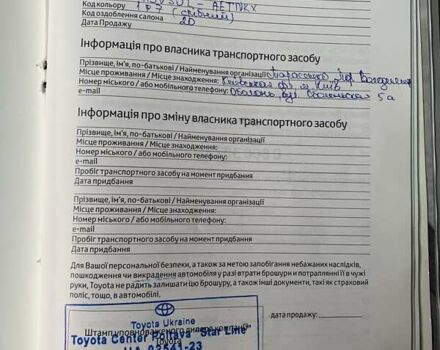 Код кольору 1F7 (срібний)
Код оздоблення салона 20
Дата Продажу
Інформація про власника транспортного засобу
Прізвище, ім'я, по-батькові / Найменування організації
Місце проживання / Місце знаходження: Київська обл, м Київ
Номер міського / або мобільного телефону: Оболонь, вул. 5а
e-mail
Інформація про зміну власника транспортного засобу
Прізвище, ім'я, по-батькові / Найменування організації
Місце проживання / Місце знаходження:
Номер міського / або мобільного телефону:
e-mail
Пробіг транспортного засобу на момент придбання
Дата придбання
Прізвище, ім'я, по-батькові / Найменування організації
Місце проживання / Місце знаходження:
Номер міського / або мобільного телефону:
e-mail
Пробіг транспортного засобу на момент придбання
Дата придбання
Для Вашої персональної безпеки, а також за метою запобігання небажаних наслідків,
пошкодження чи викрадення автомобіля у разі втрати брошури та потраплянні її в чужі
руки, Toyota не радить залишати цю брошуру, а також інші документи, такі як страховий
поліс, тощо, в автомобілі.
дата продажу:
Toyota Ukraine
Штамп уповноваженого дилера компанії
Toyota
Toyota Center Poltava "Star Line"